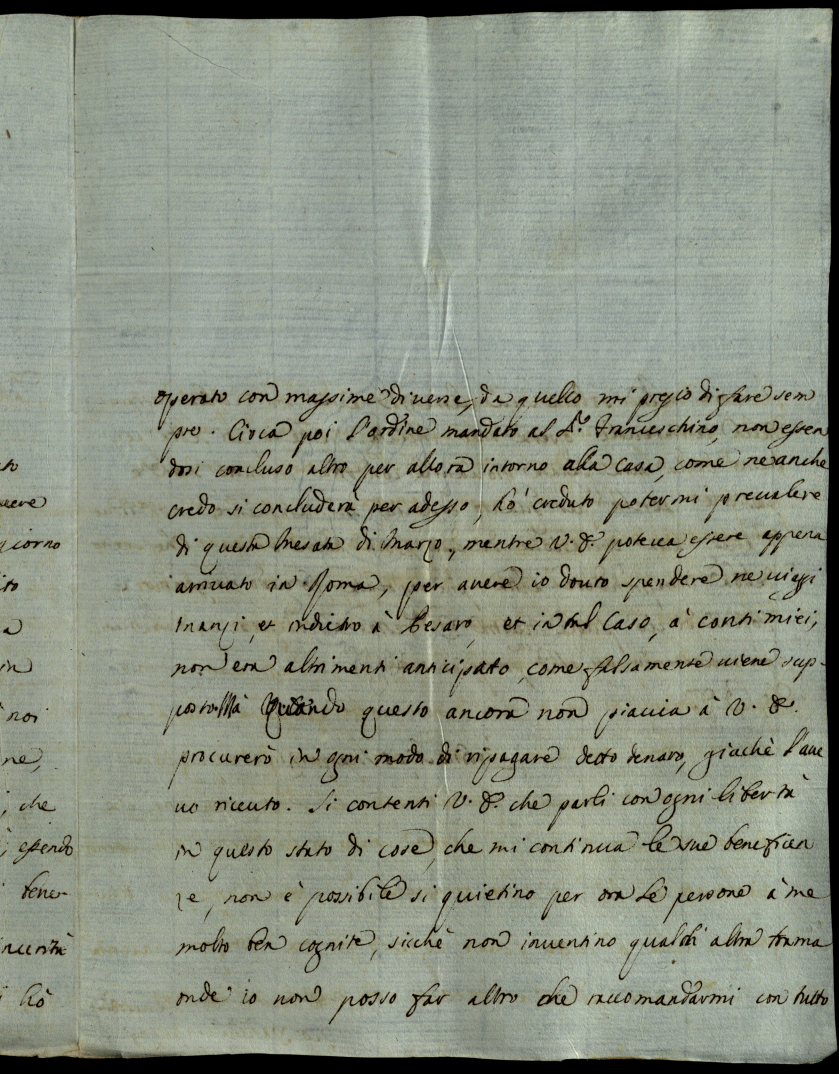 to
avere
giorno
ito
a
in
noi
ne,
, che
, essendo
bene-
incerità
hò
operato con massime diverse, da quello mi pregio di fare sem
pre. Circa poi l'ordine mandato al Sr. Franceschino, non essen
dosi concluso altro per allora intorno alla casa, come ne anche
credo si concluderà per adesso, hò creduto potermi prevalere
di questa mesata di Marzo, mentre V. E. poteva essere appena
arrivato in Roma, per avere io douto spendere ne viaggi
inanzi, et indietro à Pesaro, et in tal Caso, à conti miei,
non era altrimenti anticipato, come falsamente viene sup-
posto. Mà quando questo ancora non piaccia à V. E.
procurerò in ogni modo di ripagare detto denaro, giachè l'ave
vo riceuto. Si contenti V. E. che parli con ogni libertà
in questo stato di cose, che mi continua le sue beneficen
ze, non è possibile si quietino per ora le persone à me
molto ben cognite, sicchè non inventino qualch altra trama
onde io non posso far altro che raccomandarmi con tutto